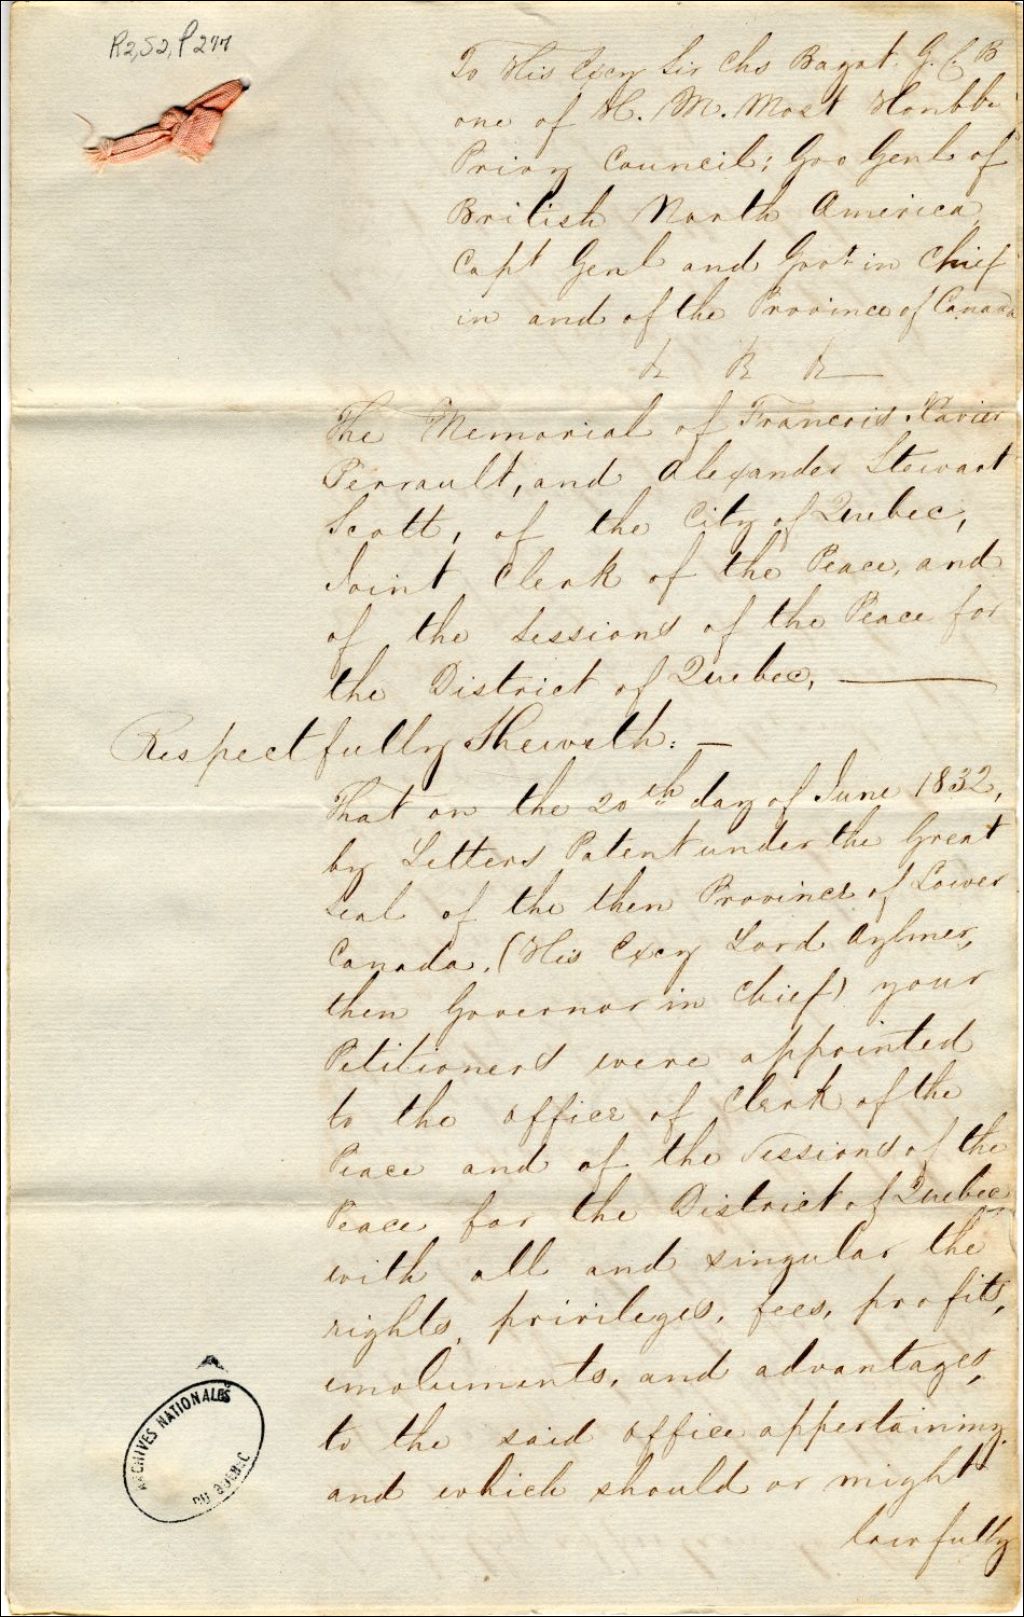 R2, S2, P277
To His Excy Sir Chs Bagot. G. C. B
one of H. M. Most Honbbe
Privy Council; Gov Genl of
British North America
Capt Genl and Govr in Chief
in and of the Province of Canada
& & &
The Memorial of Francois Xavier
Perrault, and Alexander Stewart
Scott, of the City of Quebec,
Joint Clerk of the Peace, and
of the Sessions of the Peace for
the District of Quebec,
Respectfully Sheweth: —
That on the 20th day of June 1832,
by Letters Patent under the Great
Seal of the then Province of Lower
Canada, (His Excy Lord Aylmer,
then Governor in Chief) your
Petitioners were appointed
to the office of Clerk of the
Peace and of the Sessions of the
Peace for the District of Quebec
with all and singular the
rights, privileges, fees, profits,
emoluments, and advantages,
to the said office appertaining
and which should or might
lawfully
ARCHIVES NATIONALES
DU QUEBEC